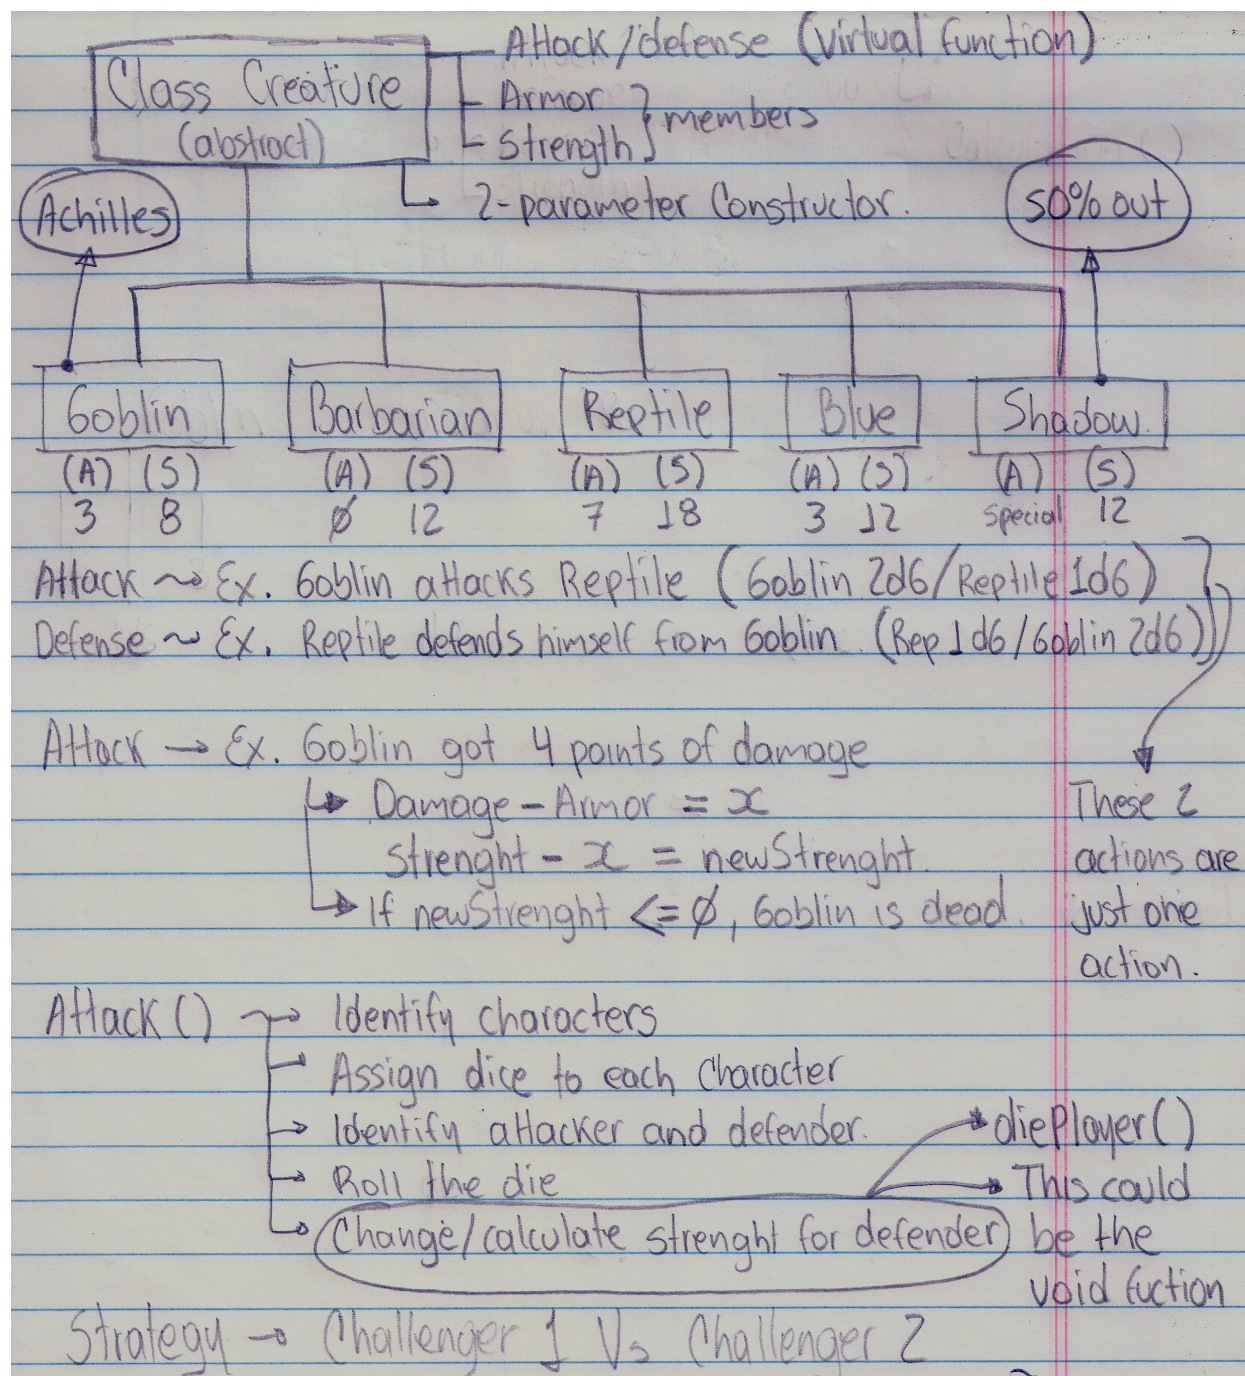 Class Creature
(abstract)
Attack/defense (virtual function)
Armor
Strength
} members
2-parameter Constructor.
Achilles
50% out
Goblin
Barbarian
Reptile
Blue
Shadow.
(A) (S)
3 8
(A) (S)
Ø 12
(A) (S)
7 18
(A) (S)
3 12
(A) (S)
special 12
Attack ~> Ex. Goblin attacks Reptile (Goblin 2d6/Reptile 1d6)
Defense ~ Ex. Reptile defends himself from Goblin. (Rep 1d6/Goblin 2d6)
These 2
actions are
just one
action.
Attack → Ex. Goblin got 4 points of damage
Damage - Armor = x
Strenght - x = newStrenght.
If newStrenght <= Ø, Goblin is dead.
Attack() → Identify characters
→ Assign dice to each Character
→ Identify attacker and defender.
→ Roll the die
→ Change/calculate strenght for defender
diePlayer()
This could
be the
void fuction
Strategy → Challenger 1 Vs Challenger 2